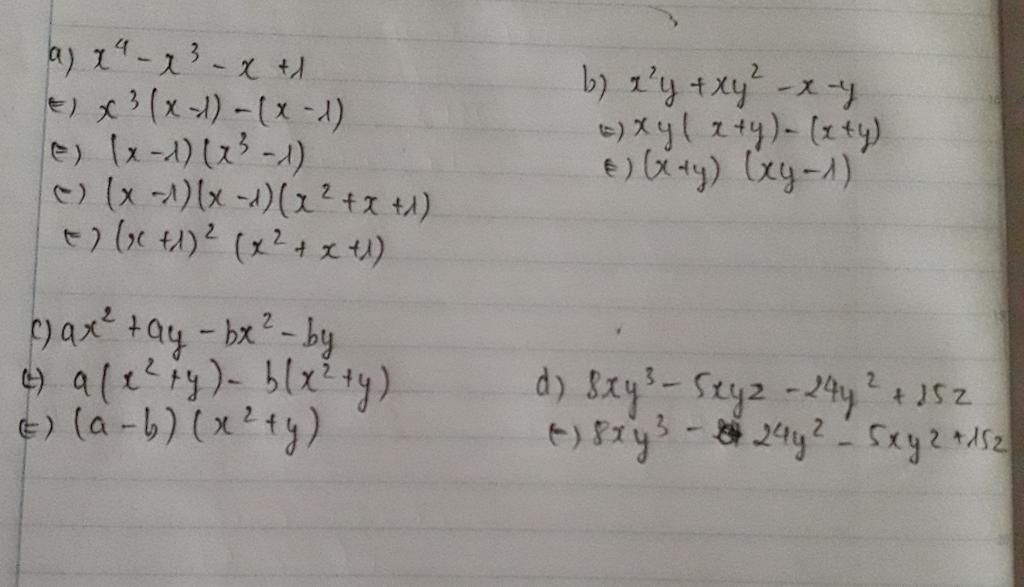 a) x⁴ - x³ - x + 1
⇔ x³(x - 1) - (x - 1)
⇔ (x - 1)(x³ - 1)
⇔ (x - 1)(x - 1)(x² + x + 1)
⇔ (x + 1)² (x² + x + 1)
b) x²y + xy² - x - y
⇔ xy(x + y) - (x + y)
⇔ (x + y) (xy - 1)
c) ax² + ay - bx² - by
⇔ a(x² + y) - b(x² + y)
⇔ (a - b)(x² + y)
d) 8xy³ - 5xyz - 24y² + 15z
⇔ 8xy³ - 24y² - 5xyz + 15z